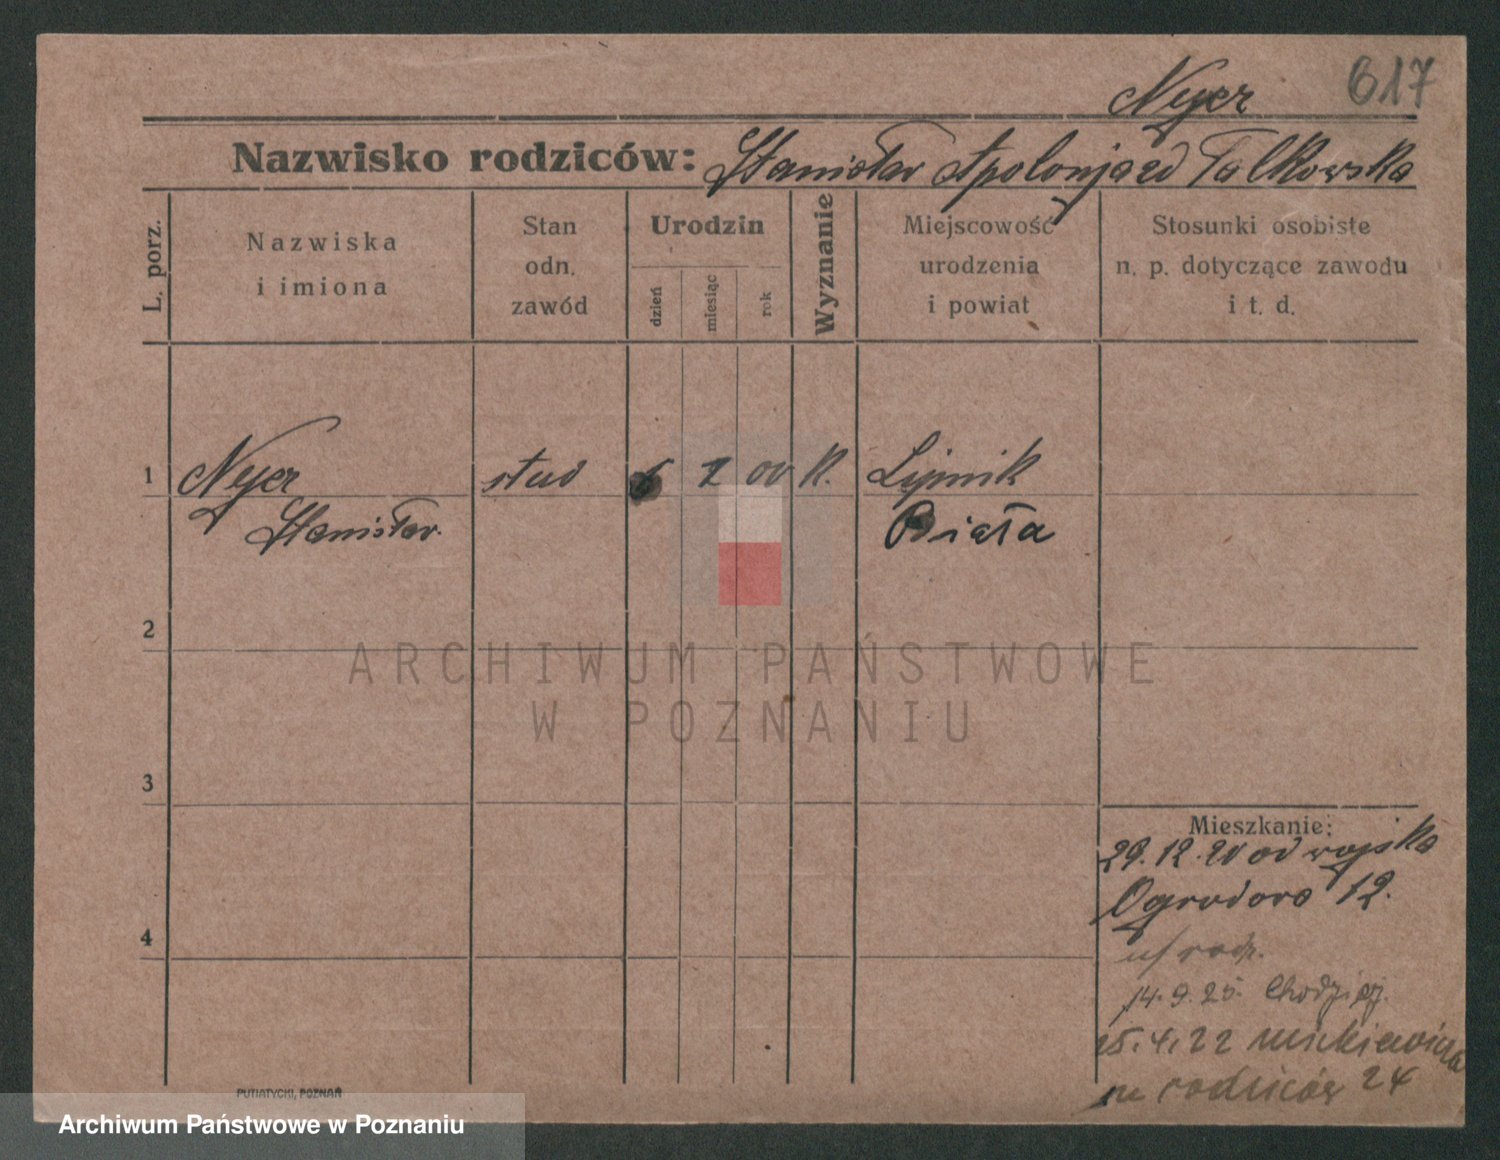 Nyer 617
Nazwisko rodziców: Stanisław Apolonja zd Talkowska
L. porz.
Nazwiska i imiona
Stan odn. zawód
Urodzin
dzień
miesiąc
rok
Wyznanie
Miejscowość urodzenia i powiat
Stosunki osobiste n. p. dotyczące zawodu i t. d.
1 Nyer stud 2 00 K. Lipnik
Stanisław. Biała
2
ARCHIWUM PAŃSTWOWE
W POZNANIU
3
Mieszkanie:
29.12.20 od wojska
Ogrodowa 12.
4
u/ rodz.
14.9.25. Chodzież.
25.4.22 Mickiewicza
rodziców 24
PUTIATYCKI, POZNAŃ
Archiwum Państwowe w Poznaniu